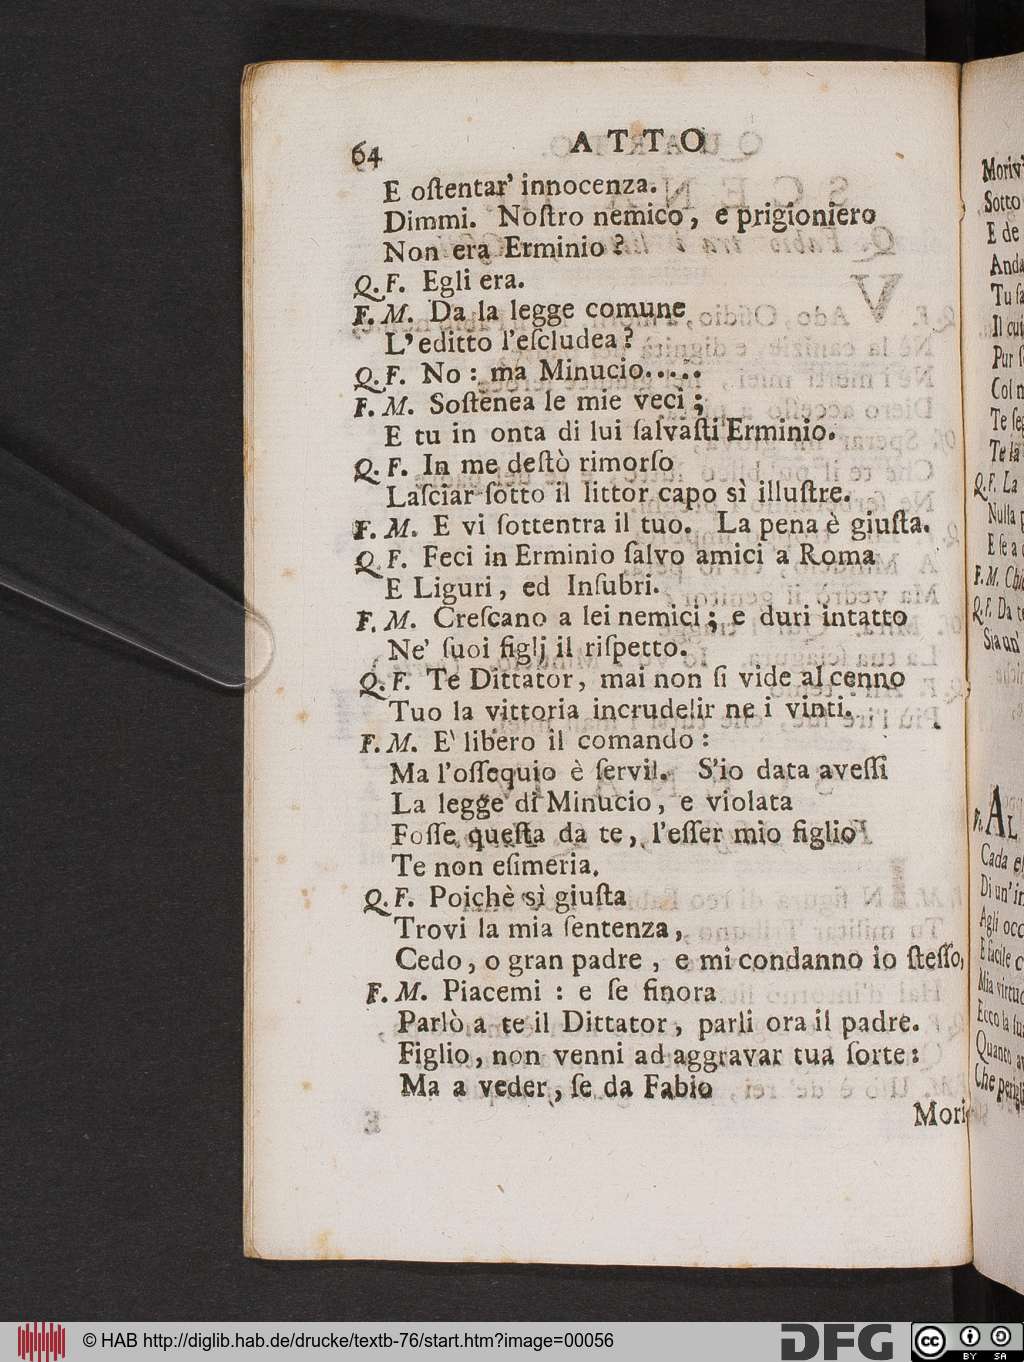 64
ATTO
E oſtentar' innocenza.
Dimmi. Noſtro nemico, e prigioniero
Non era Erminio?
Q. F. Egli era.
F. M. Da la legge comune
L'editto l'eſcludea?
Q. F. No: ma Minucio.....
F. M. Soſtenea le mie veci;
E tu in onta di lui ſalvaſti Erminio.
Q. F. In me deſtò rimorſo
Laſciar ſotto il littor capo sì illuſtre.
F. M. E vi ſottentra il tuo. La pena è giuſta.
Q. F. Feci in Erminio ſalvo amici a Roma
E Liguri, ed Inſubri.
F. M. Creſcano a lei nemici; e duri intatto
Ne' ſuoi figlj il riſpetto.
Q. F. Te Dittator, mai non ſi vide al cenno
Tuo la vittoria incrudelir ne i vinti.
F. M. E' libero il comando:
Ma l'oſſequio è ſervil. S'io data aveſſi
La legge di Minucio, e violata
Foſſe queſta da te, l'eſſer mio figlio
Te non eſimeria.
Q. F. Poichè sì giuſta
Trovi la mia ſentenza,
Cedo, o gran padre, e mi condanno io ſteſſo,
F. M. Piacemi: e ſe finora
Parlò a te il Dittator, parli ora il padre.
Figlio, non venni ad aggravar tua ſorte:
Ma a veder, ſe da Fabio
Mori-
Sotto
E de
Tu
Il
Pur
Col
Te
Te la
Q. F. La
Nulla
E ſe a
F. M.
Q. F. Da
AL
Cada
Di un'
Agli
E facile
Mia
Ecco la
Quanto
Che
© HAB http://diglib.hab.de/drucke/textb-76/start.htm?image=00056
DFG
cc
BY SA